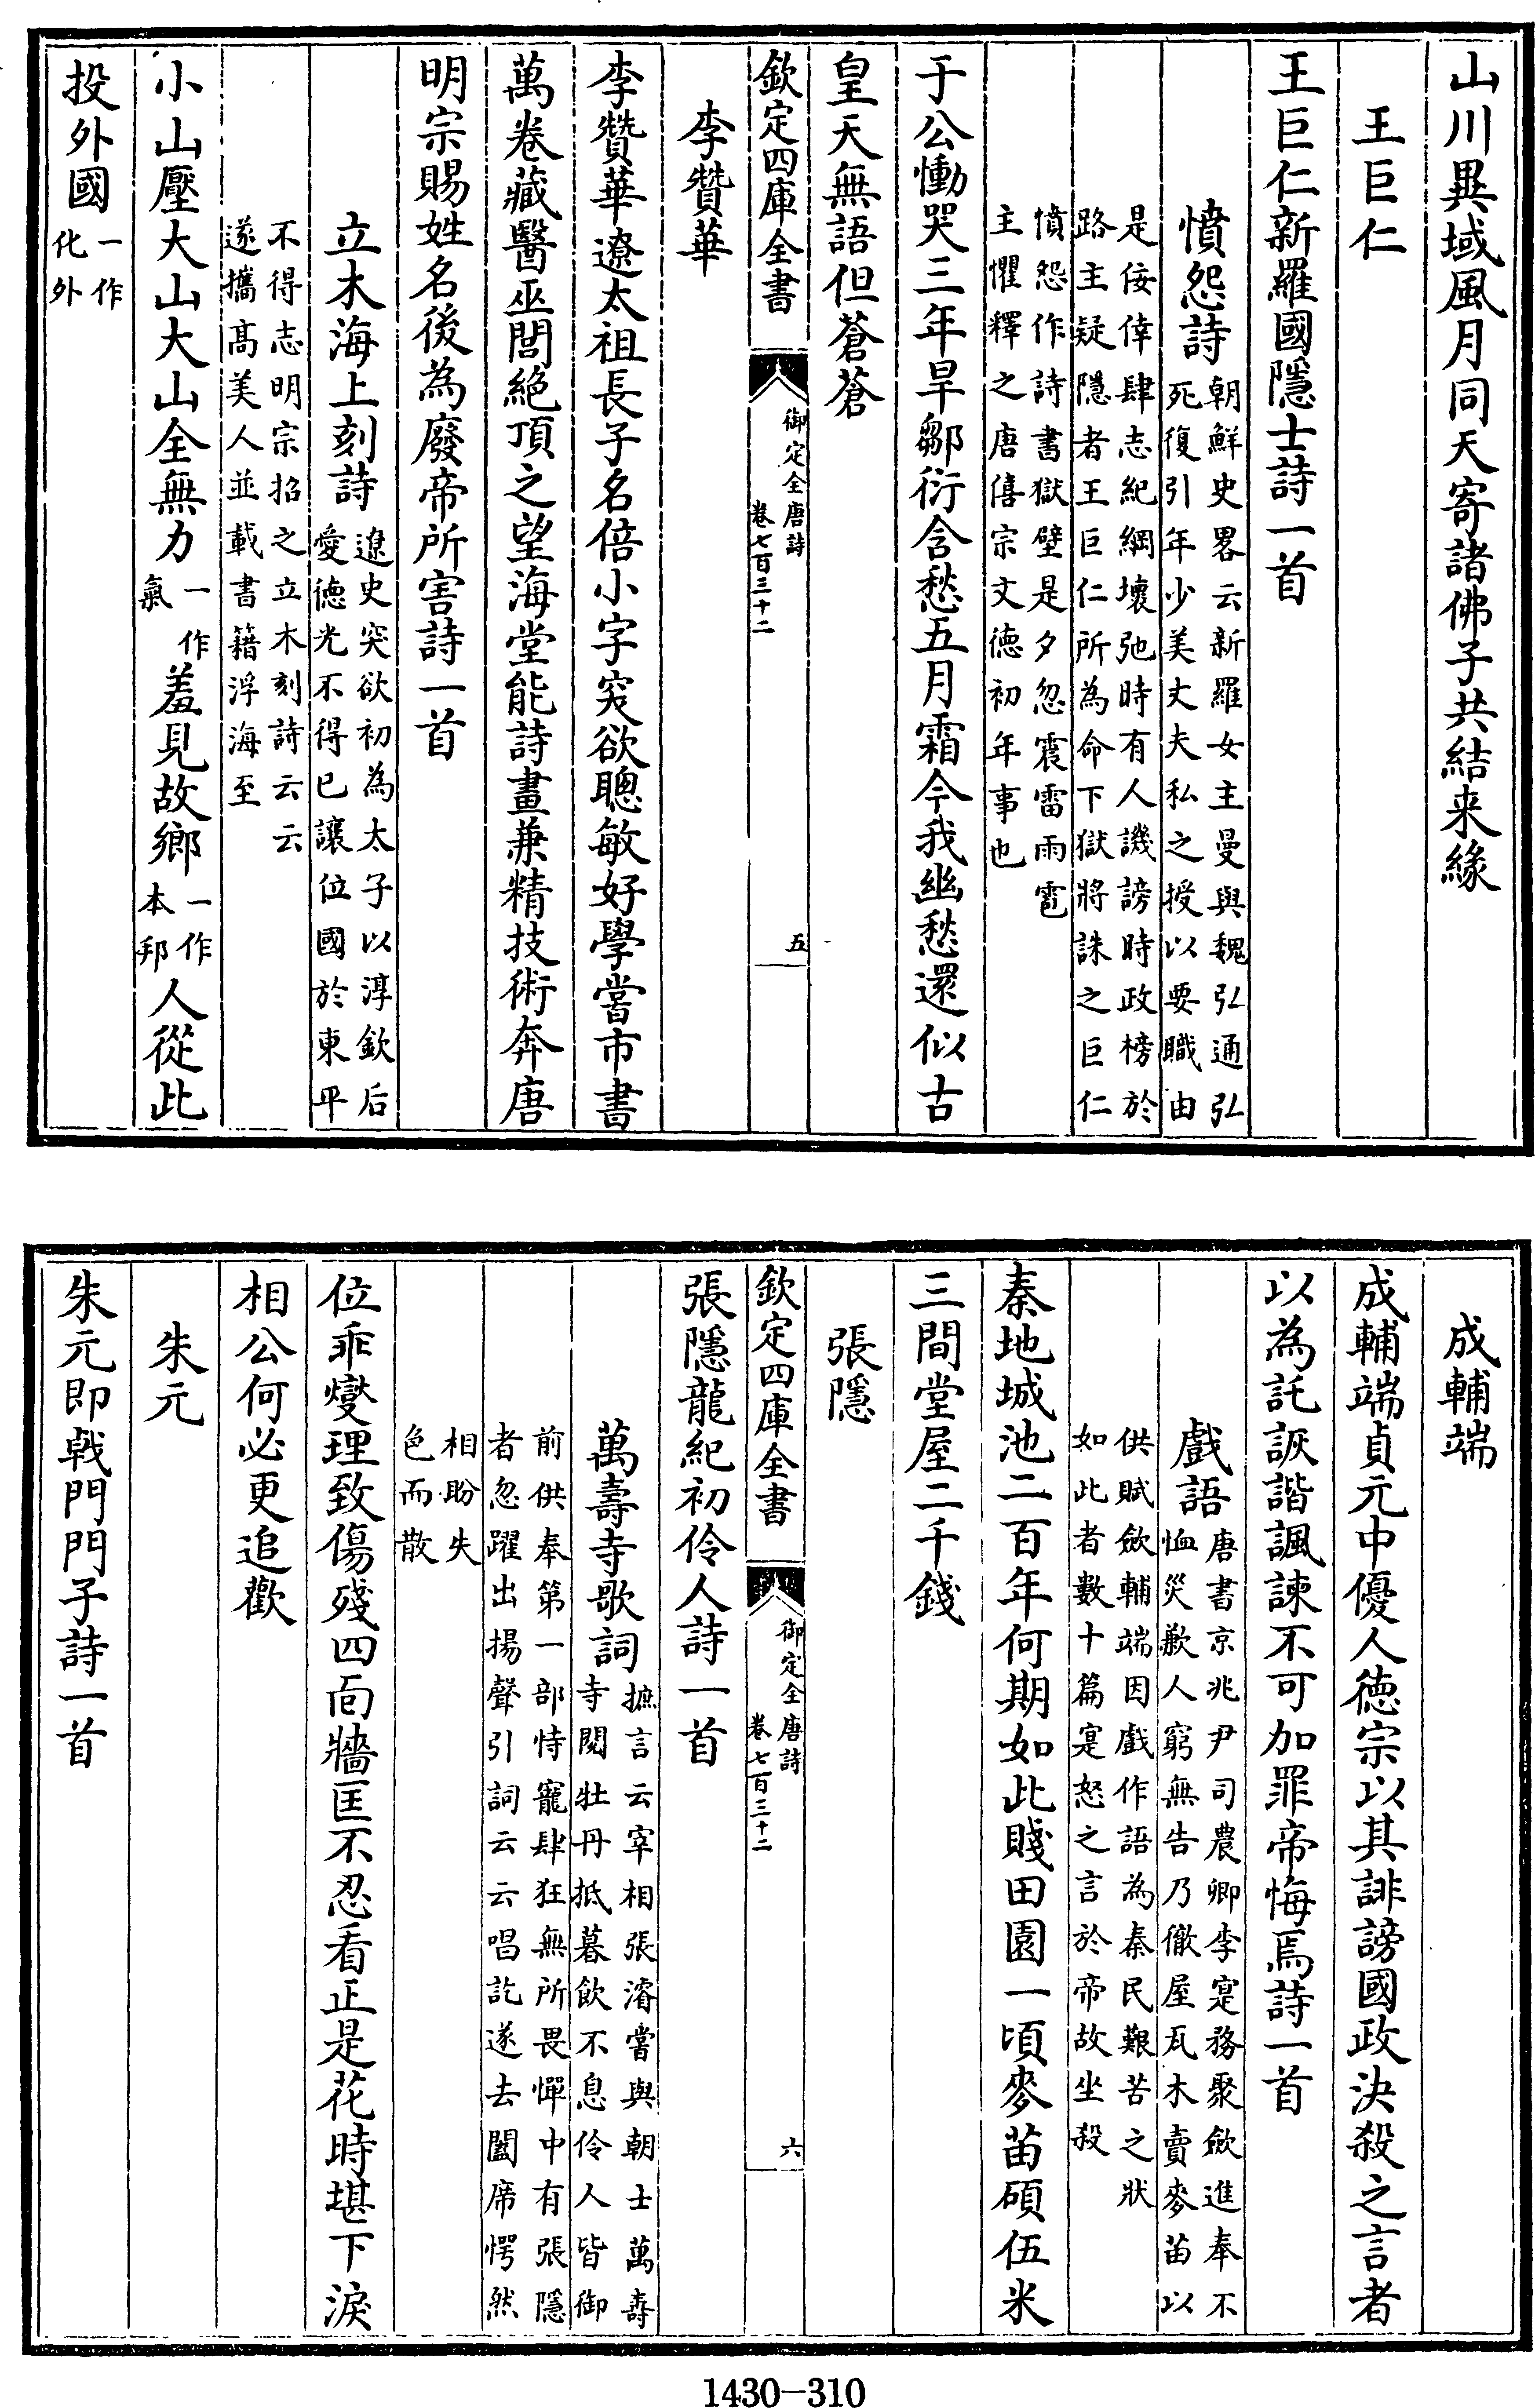 山川異域風月同天寄諸佛子共結来緣
王巨仁
王巨仁新羅國隱士詩一首
憤怨詩
朝鮮史畧云新羅女主曼與魏弘通弘
死復引年少美丈夫私之授以要職由
是佞倖肆志紀綱壞弛時有人譏謗時政榜於
路主疑隱者王巨仁所為命下獄將誅之巨仁
憤怨作詩書獄壁是夕忽震雷雨雹
主懼釋之唐僖宗文德初年事也
于公慟哭三年旱鄒衍含愁五月霜今我幽愁還似古
皇天無語但蒼蒼
欽定四庫全書
御定全唐詩
卷七百三十二
五
李贊華
李贊華遼太祖長子名倍小字突欲聰敏好學嘗市書
萬卷藏醫巫閭絕頂之望海堂能詩畫兼精技術奔唐
明宗賜姓名後為廢帝所害詩一首
立木海上刻詩
遼史突欲初為太子以淳欽后
愛德光不得已讓位國於東平
不得志明宗招之立木刻詩云云
遂攜高美人並載書籍浮海至
小山壓大山大山全無力一作氣羞見故鄉一作本邦人從此
投外國一作化外
成輔端
成輔端貞元中優人德宗以其誹謗國政決殺之言者
以為託詼諧諷諫不可加罪帝悔焉詩一首
戲語
唐書京兆尹司農卿李寔務聚歛進奉不
恤災歉人窮無告乃徹屋瓦木賣麥苗以
供賦歛輔端因戲作語為秦民艱苦之狀
如此者數十篇寔怒之言於帝故坐殺
秦地城池二百年何期如此賤田園一頃麥苗碩伍米
三間堂屋二千錢
張隱
欽定四庫全書
御定全唐詩
卷七百三十二
六
張隱龍紀初伶人詩一首
萬壽寺歌詞
摭言云宰相張濬嘗與朝士萬壽
寺閱牡丹抵暮飲不息伶人皆御
前供奉第一部恃寵肆狂無所畏憚中有張隱
者忽躍出揚聲引詞云云唱訖遂去闔席愕然
相盼失
色而散
位乖燮理致傷殘四面牆匡不忍看正是花時堪下淚
相公何必更追歡
朱元
朱元即戟門門子詩一首
1430-310